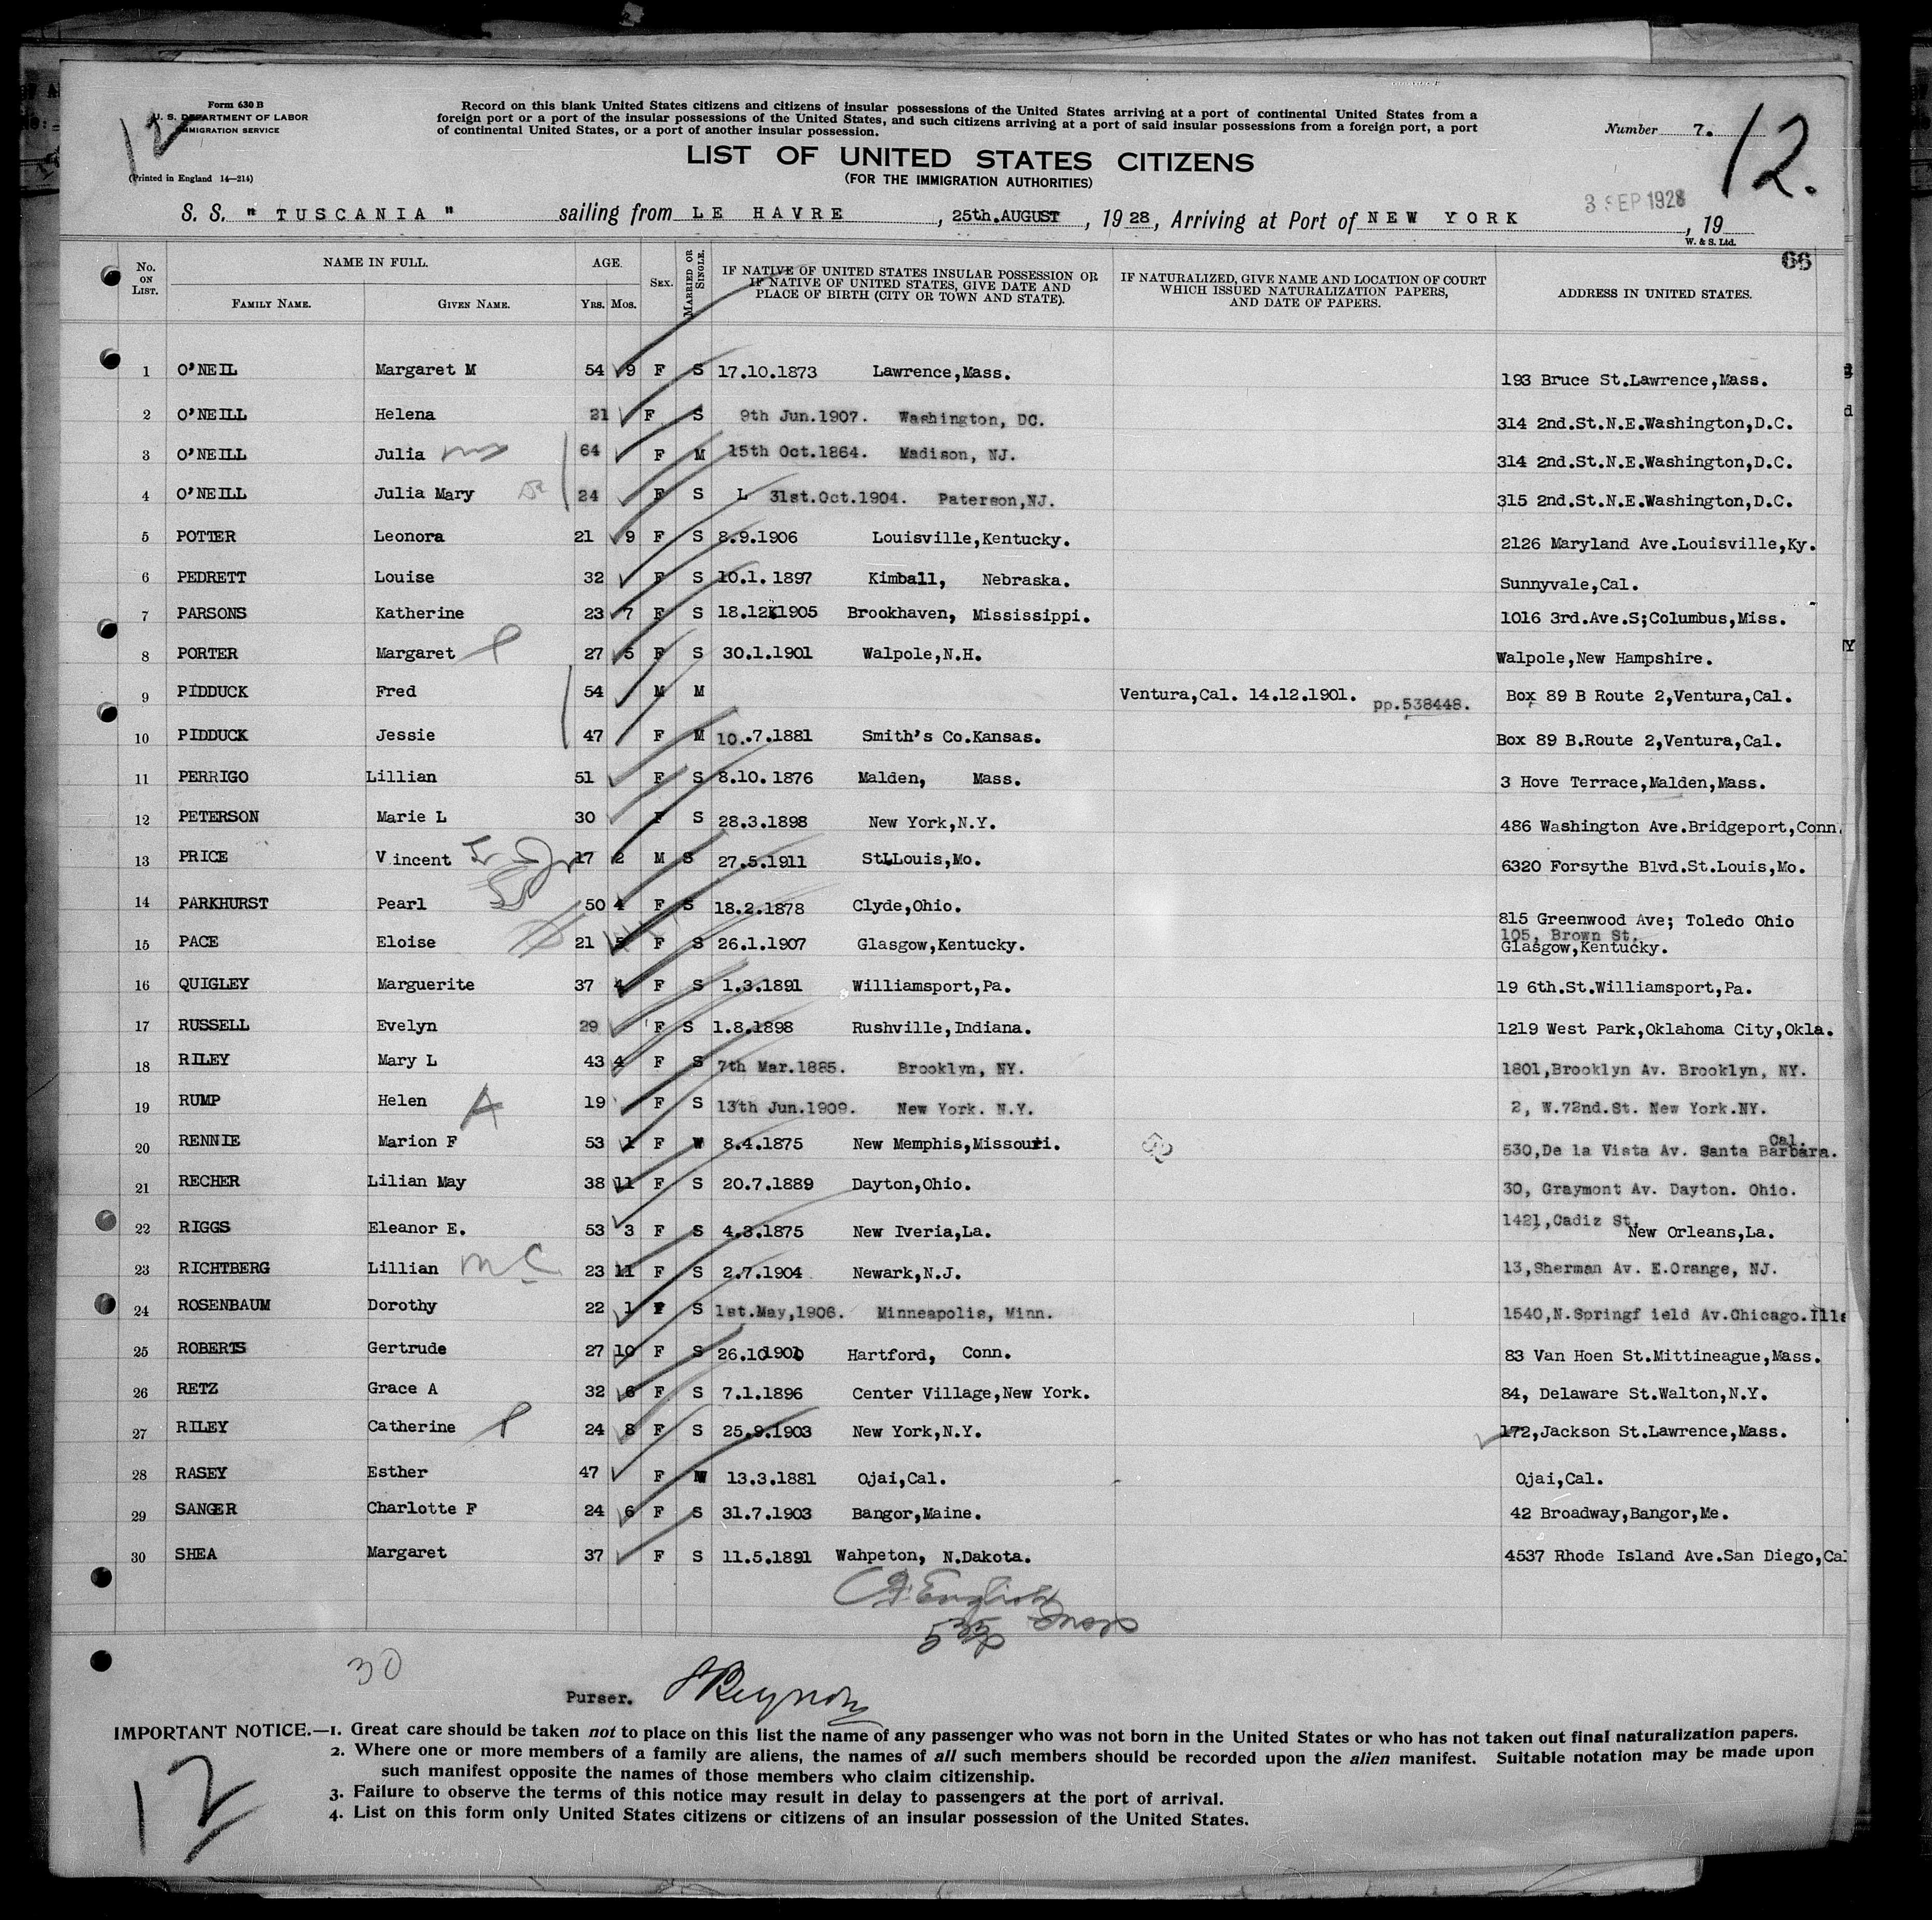 Form 630 B
U. S. DEPARTMENT OF LABOR
IMMIGRATION SERVICE
(Printed in England 14—214)
12
Record on this blank United States citizens and citizens of insular possessions of the United States arriving at a port of continental United States from a
foreign port or a port of the insular possessions of the United States, and such citizens arriving at a port of said insular possessions from a foreign port, a port
of continental United States, or a port of another insular possession.
Number 7.
12.
LIST OF UNITED STATES CITIZENS
(FOR THE IMMIGRATION AUTHORITIES)
3 SEP 1928
S. S. "TUSCANIA" sailing from LE HAVRE, 25th.AUGUST, 1928, Arriving at Port of NEW YORK, 19
W. & S. Ltd.
66
No. ON LIST. NAME IN FULL. FAMILY NAME. GIVEN NAME. AGE. YRS. MOS. SEX. MARRIED OR SINGLE. IF NATIVE OF UNITED STATES INSULAR POSSESSION OR IF NATIVE OF UNITED STATES, GIVE DATE AND PLACE OF BIRTH (CITY OR TOWN AND STATE). IF NATURALIZED, GIVE NAME AND LOCATION OF COURT WHICH ISSUED NATURALIZATION PAPERS, AND DATE OF PAPERS. ADDRESS IN UNITED STATES.
1 O'NEIL Margaret M 54 9 F S 17.10.1873 Lawrence,Mass. 193 Bruce St.Lawrence,Mass.
2 O'NEILL Helena 21 F S 9th Jun.1907. Washington, DC. 314 2nd.St.N.E.Washington,D.C.
3 O'NEILL Julia 64 F M 15th Oct.1864. Madison, NJ. 314 2nd.St.N.E.Washington,D.C.
4 O'NEILL Julia Mary 24 F S L 31st.Oct.1904. Paterson,NJ. 315 2nd.St.N.E.Washington,D.C.
5 POTTER Leonora 21 9 F S 8.9.1906 Louisville,Kentucky. 2126 Maryland Ave.Louisville,Ky.
6 PEDRETT Louise 32 F S 10.1.1897 Kimball, Nebraska. Sunnyvale,Cal.
7 PARSONS Katherine 23 7 F S 18.12 1905 Brookhaven, Mississippi. 1016 3rd.Ave.S;Columbus,Miss.
8 PORTER Margaret 27 5 F S 30.1.1901 Walpole,N.H. Walpole,New Hampshire.
9 PIDDUCK Fred 54 M M Ventura,Cal. 14.12.1901. pp.538448. Box 89 B Route 2,Ventura,Cal.
10 PIDDUCK Jessie 47 F M 10..7.1881 Smith's Co.Kansas. Box 89 B.Route 2,Ventura,Cal.
11 PERRIGO Lillian 51 F S 8.10.1876 Malden, Mass. 3 Hove Terrace,Malden,Mass.
12 PETERSON Marie L 30 F S 28.3.1898 New York,N.Y. 486 Washington Ave.Bridgeport,Conn.
13 PRICE Vincent Jr 17 2 M S 27.5.1911 St.Louis,Mo. 6320 Forsythe Blvd.St.Louis,Mo.
14 PARKHURST Pearl 50 4 F S 18.2.1878 Clyde,Ohio. 815 Greenwood Ave; Toledo Ohio
15 PACE Eloise 21 F S 26.1.1907 Glasgow,Kentucky. 105, Brown St. Glasgow,Kentucky.
16 QUIGLEY Marguerite 37 4 F S 1.3.1891 Williamsport,Pa. 19 6th.St.Williamsport,Pa.
17 RUSSELL Evelyn 29 F S 1.8.1898 Rushville,Indiana. 1219 West Park,Oklahoma City,Okla.
18 RILEY Mary L 43 4 F S 7th Mar.1885. Brooklyn, NY. 1801,Brooklyn Av. Brooklyn, NY.
19 RUMP Helen A 19 F S 13th Jun.1909. New York. N.Y. 2, W.72nd.St. New York.NY.
20 RENNIE Marion F 53 1 F W 8.4.1875 New Memphis,Missouri. 530,De la Vista Av. Santa Barbara. Cal.
21 RECHER Lilian May 38 11 F S 20.7.1889 Dayton,Ohio. 30, Graymont Av. Dayton. Ohio.
22 RIGGS Eleanor E. 53 3 F S 4.3.1875 New Iveria,La. 1421,Cadiz St. New Orleans,La.
23 RICHTBERG Lillian 23 11 F S 2.7.1904 Newark,N.J. 13,Sherman Av. E.Orange, NJ.
24 ROSENBAUM Dorothy 22 1 F S 1st.May,1906. Minneapolis, Minn. 1540,N.Springf ield Av.Chicago.Ills
25 ROBERTS Gertrude 27 10 F S 26.10 1900 Hartford, Conn. 83 Van Hoen St.Mittineague,Mass.
26 RETZ Grace A 32 6 F S 7.1.1896 Center Village,New York. 84, Delaware St.Walton,N.Y.
27 RILEY Catherine 24 8 F S 25.9.1903 New York,N.Y. 172,Jackson St.Lawrence,Mass.
28 RASEY Esther 47 F W 13.3.1881 Ojai,Cal. Ojai,Cal.
29 SANGER Charlotte F 24 6 F S 31.7.1903 Bangor,Maine. 42 Broadway,Bangor,Me.
30 SHEA Margaret 37 F S 11.5.1891 Wahpeton, N.Dakota. 4537 Rhode Island Ave.San Diego,Cal
English
30
Purser.
IMPORTANT NOTICE.—1. Great care should be taken not to place on this list the name of any passenger who was not born in the United States or who has not taken out final naturalization papers.
2. Where one or more members of a family are aliens, the names of all such members should be recorded upon the alien manifest. Suitable notation may be made upon
such manifest opposite the names of those members who claim citizenship.
3. Failure to observe the terms of this notice may result in delay to passengers at the port of arrival.
4. List on this form only United States citizens or citizens of an insular possession of the United States.
12